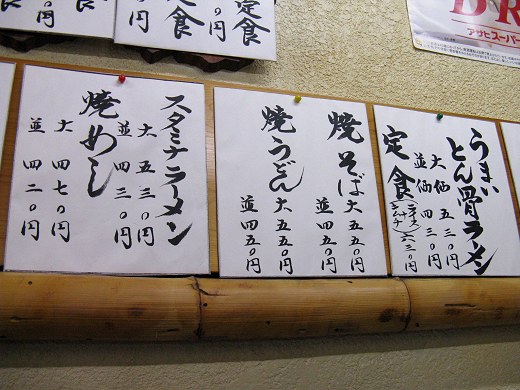 定食
〇円
定食
〇円
アサヒスーパー
うまい
とん骨ラーメン
大 価 五三〇円
並 価 四三〇円
定食
六三〇円
焼そば
大 五五〇円
並 四五〇円
焼うどん
大 五五〇円
並 四五〇円
スタミナラーメン
大 五三〇円
並 四三〇円
焼めし
大 四七〇円
並 四二〇円